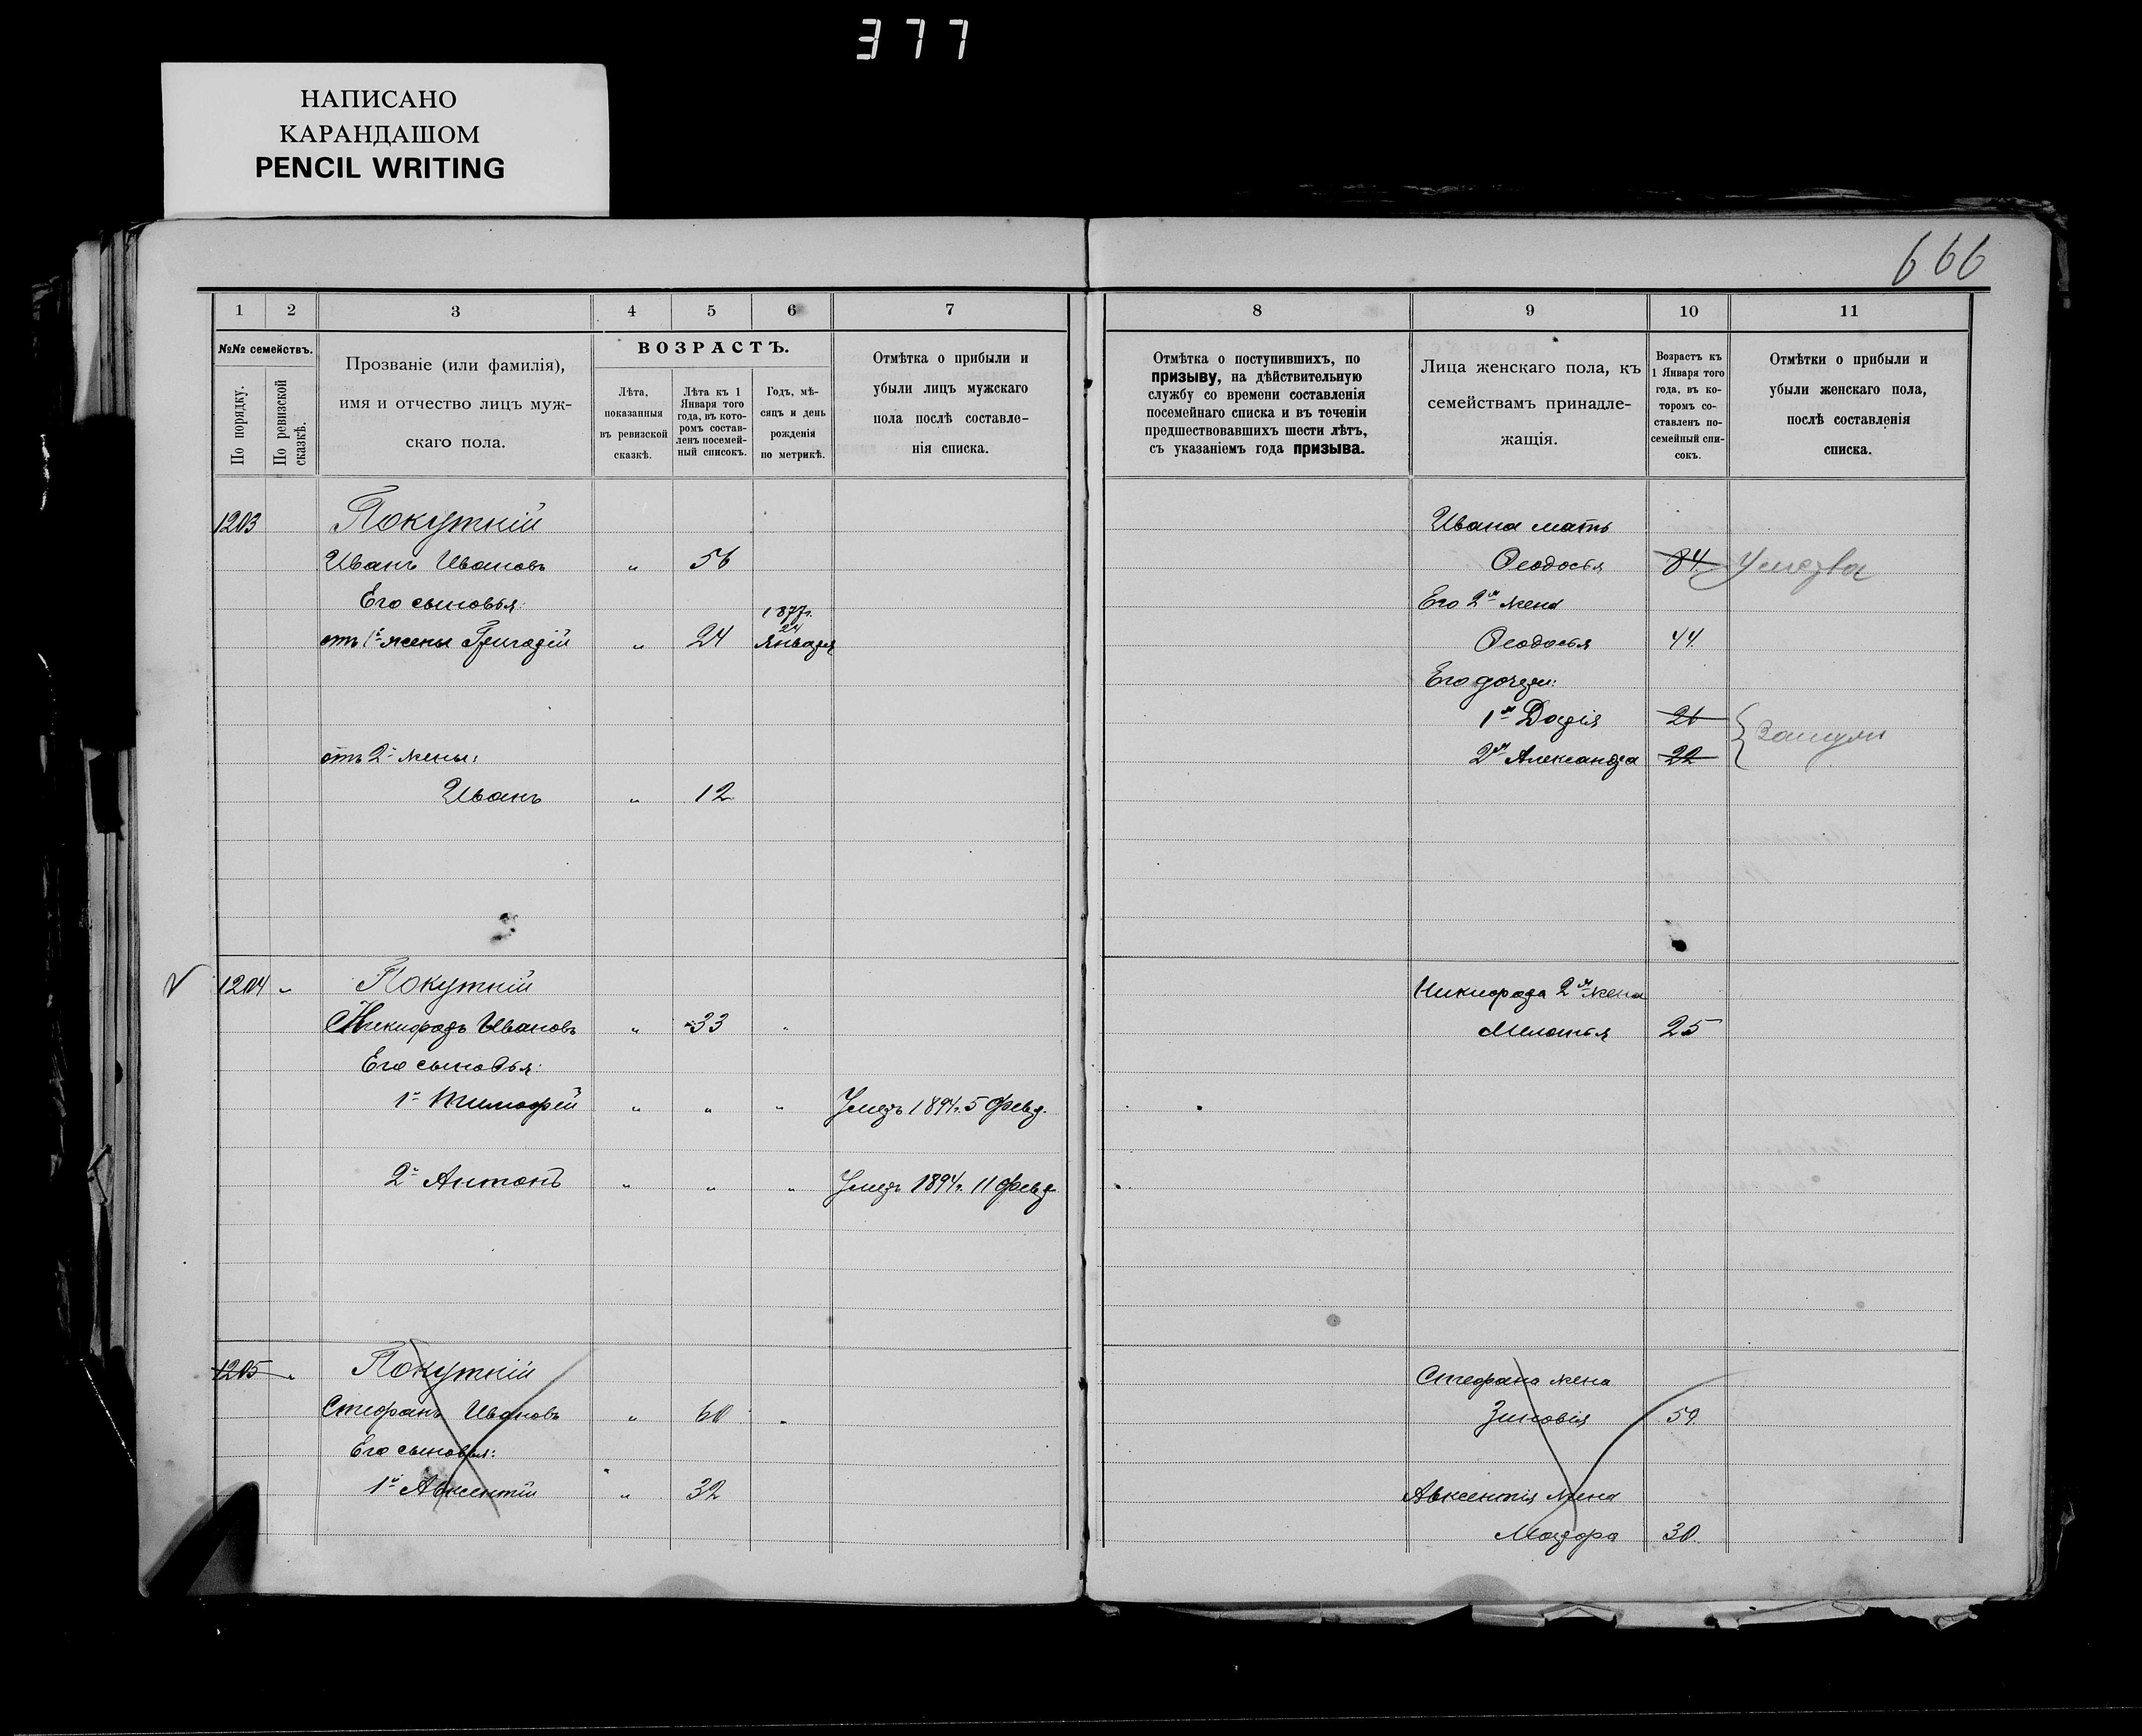 377
НАПИСАНО
КАРАНДАШОМ
PENCIL WRITING
666
1 2 3 4 5 6 7 8 9 10 11
№№ семействъ.
По порядку.
По ревизской сказкѣ.
Прозваніе (или фамилія),
имя и отчество лицъ муж-
скаго пола.
ВОЗРАСТЪ.
Лѣта,
показанныя
въ ревизской
сказкѣ.
Лѣта къ 1
Января того
года, въ кото-
ромъ состав-
ленъ посемей-
ный списокъ.
Годъ, мѣ-
сяцъ и день
рожденія
по метрикѣ.
Отмѣтка о прибыли и
убыли лицъ мужскаго
пола послѣ составле-
нія списка.
Отмѣтка о поступившихъ, по
призыву, на дѣйствительную
службу со времени составленія
посемейнаго списка и въ теченіи
предшествовавшихъ шести лѣтъ,
съ указаніемъ года призыва.
Лица женскаго пола, къ
семействамъ принадле-
жащія.
Возрастъ къ
1 Января того
года, въ ко-
торомъ со-
ставленъ по-
семейный спи-
сокъ.
Отмѣтки о прибыли и
убыли женскаго пола,
послѣ составленія
списка.
1203 Покутній Ивана мать
Иванъ Ивановъ " 56 Ѳеодосья 84 Умерла
Его сыновья: Его 2я жена
1877г.
24
отъ 1й жены Григорій " 24 Января Ѳеодосья 44.
Его дочери:
1я Дарія 26
Замужъ
отъ 2й жены: 2я Александра 22
Иванъ " 12
1204 " Покутній Никифора 2я жена
Никифоръ Ивановъ " 33 " Мелатья 25
Его сыновья:
1й Тимофей " " " Умеръ 1894г. 5 Февр.
2й Антонъ " " " Умеръ 1894г. 11 Февр.
1205 " Покутній Стефана жена
Стефанъ Ивановъ " 60 " Зиновія 59.
Его сыновья:
1й Авксентій " 32 Авксентія жена
Мавдора 30.